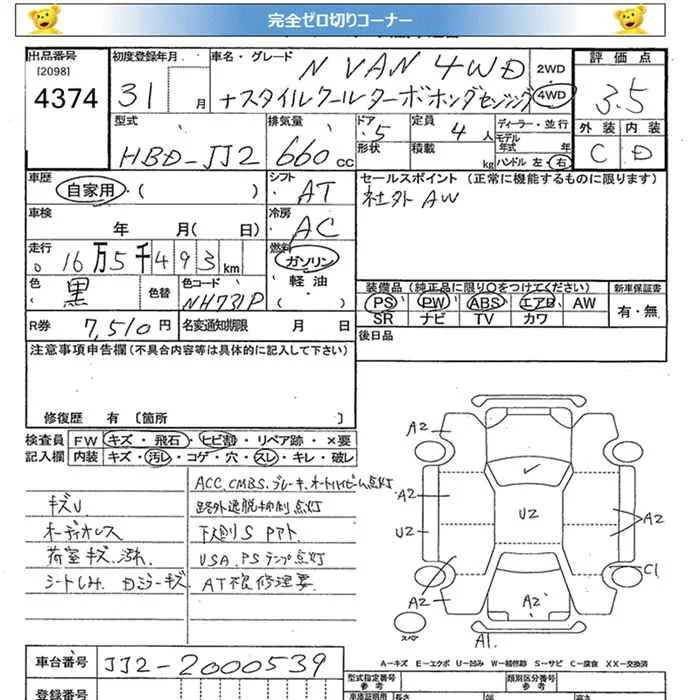 完全ゼロ切りコーナー
出品番号
[2098]
4374
初度登録年月
31 月
車名・グレード
N VAN 4WD
+スタイルクールターボホンダセンシング
2WD
4WD
評価点
3.5
外装 内装
C D
型式
HBD-JJ2
排気量
660 cc
ドア
5
形状
定員
4 人
積載
kg
ディーラー・並行
モデル
年式 年
ハンドル 左・右
車歴
自家用・( )
シフト
AT
セールスポイント (正常に機能するものに限ります)
社外 AW
車検
年 月( 日)
冷房
AC
走行
16万5千493 km
燃料
ガソリン
軽油
( )
色
黒
色替
色コード
NH731P
装備品 (純正品に限り○をつけてください)
PS PW ABS エアB AW
SR ナビ TV カワ
新車保証書
有・無
R券 7,510円
名変通知期限 月 日
後日品
注意事項申告欄(不具合内容等は具体的に記入して下さい)
修復歴 有 [箇所 ]
検査員 FW キズ・飛石・ヒビ割・リペア跡・×要
記入欄 内装 キズ・汚レ・コゲ・穴・スレ・キレ・破レ
ACC.CMBS.ブレーキ.オートハイビーム点灯
キズU
路外逸脱抑制点灯
オーディオレス
下廻りS アト
荷室キズ.汚れ
VSA.PSランプ点灯
シートしみ.Dミラーキズ
AT不良修理要
A2
A2
U2
A2
U2
A2
C1
A2
A2
スペア
A1
A-キズ E-エクボ U-凹み W-補修跡 S-サビ C-腐食 XX-交換済
車台番号
JJ2-2000539
登録番号
型式指定番号
参考
類別区分番号
参考
車庫証明用
長さ
幅
高さ